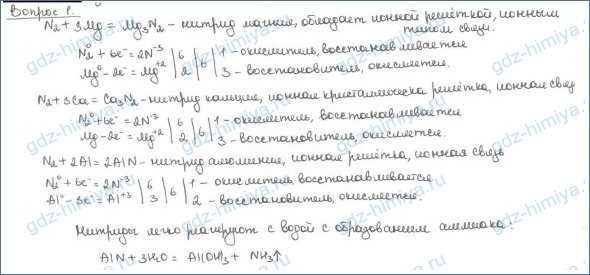 Вопрос 1.
N₂ + 3Mg = Mg₃N₂ - нитрид магния, обладает ионной решёткой, ионным
типом связи.
N₂⁰ + 6e⁻ = 2N⁻³ | 6 | 6 | 1 - окислитель, восстанавливается
Mg⁰ - 2e⁻ = Mg⁺² | 2 | 3 - восстановитель, окисляется.
N₂ + 3Ca = Ca₃N₂ - нитрид кальция, ионная кристаллическа решётка, ионная связь
N₂⁰ + 6e⁻ = 2N⁻³ | 6 | 6 | 1 - окислитель, восстанавливается
Mg - 2e⁻ = Mg⁺² | 2 | 3 - восстановитель, окисляется.
N₂ + 2Al = 2AlN - нитрид алюминия, ионная решётка, ионная связь
N₂⁰ + 6e⁻ = 2N⁻³ | 6 | 6 | 1 - окислитель, восстанавливается
Al⁰ - 3e⁻ = Al⁺³ | 3 | 2 - восстановитель, окисляется.
Нитриды легко реагируют с водой с образованием аммиака:
AlN + 3H₂O = Al(OH)₃ + NH₃↑
gdz-himiya.ru